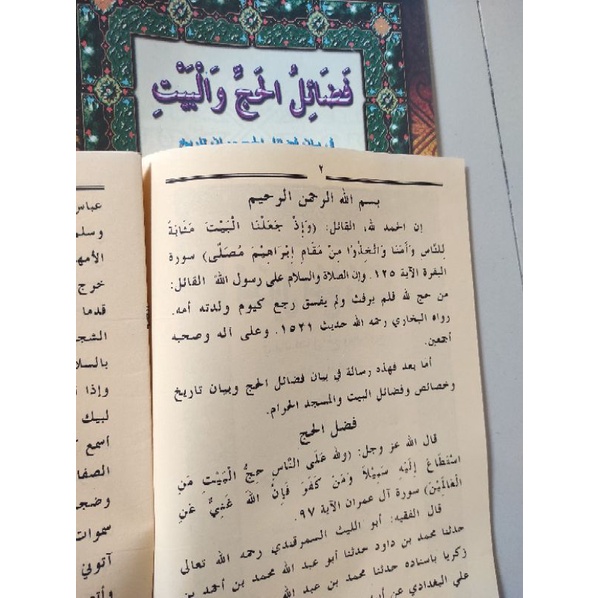 فَضَائِلُ الْحَجِّ وَالْبَيْتِ
٢
بسم الله الرحمن الرحيم
إن الحمد لله، القائل: (وَإِذْ جَعَلْنَا الْبَيْتَ مَثَابَةً
لِلنَّاسِ وَأَمْنًا وَاتَّخِذُوا مِنْ مَقَامِ إِبْرَاهِيْمَ مُصَلًّى) سورة
البقرة الآية ١٢٥. وإن الصلاة والسلام على رسول الله القائل:
من حج لله فلم يرفث ولم يفسق رجع كيوم ولدته أمه.
رواه البخاري رحمه الله حديث ١٥٢١. وعلى آله وصحبه
أجمعين.
أما بعد فهذه رسالة في بيان فضائل الحج وبيان تاريخ
وخصائص وفضائل البيت والمسجد الحرام.
فضل الحج
قال الله عز وجل: (وَلله عَلَى النَّاسِ حِجُّ الْبَيْتِ مَنِ
اسْتَطَاعَ إِلَيْهِ سَبِيْلاً وَمَنْ كَفَرَ فَإِنَّ اللهَ غَنِيٌّ عَنِ
الْعَالَمِيْنَ) سورة آل عمران الآية ٩٧.
قال الفقيه: أبو الليث السمرقندي رحمه الله تعالى
حدثنا محمد بن داود حدثنا أبو عبد الله محمد بن أحمد بن
زكريا باسناده حدثنا محمد بن عبد الله
علي البغدادي عن
عباس
وسلم
الأمه
خرج
قدما
الشجر
بالسلا
وإذا
لبيك
أسمع
الصفا
وضج
سموات
آتوني